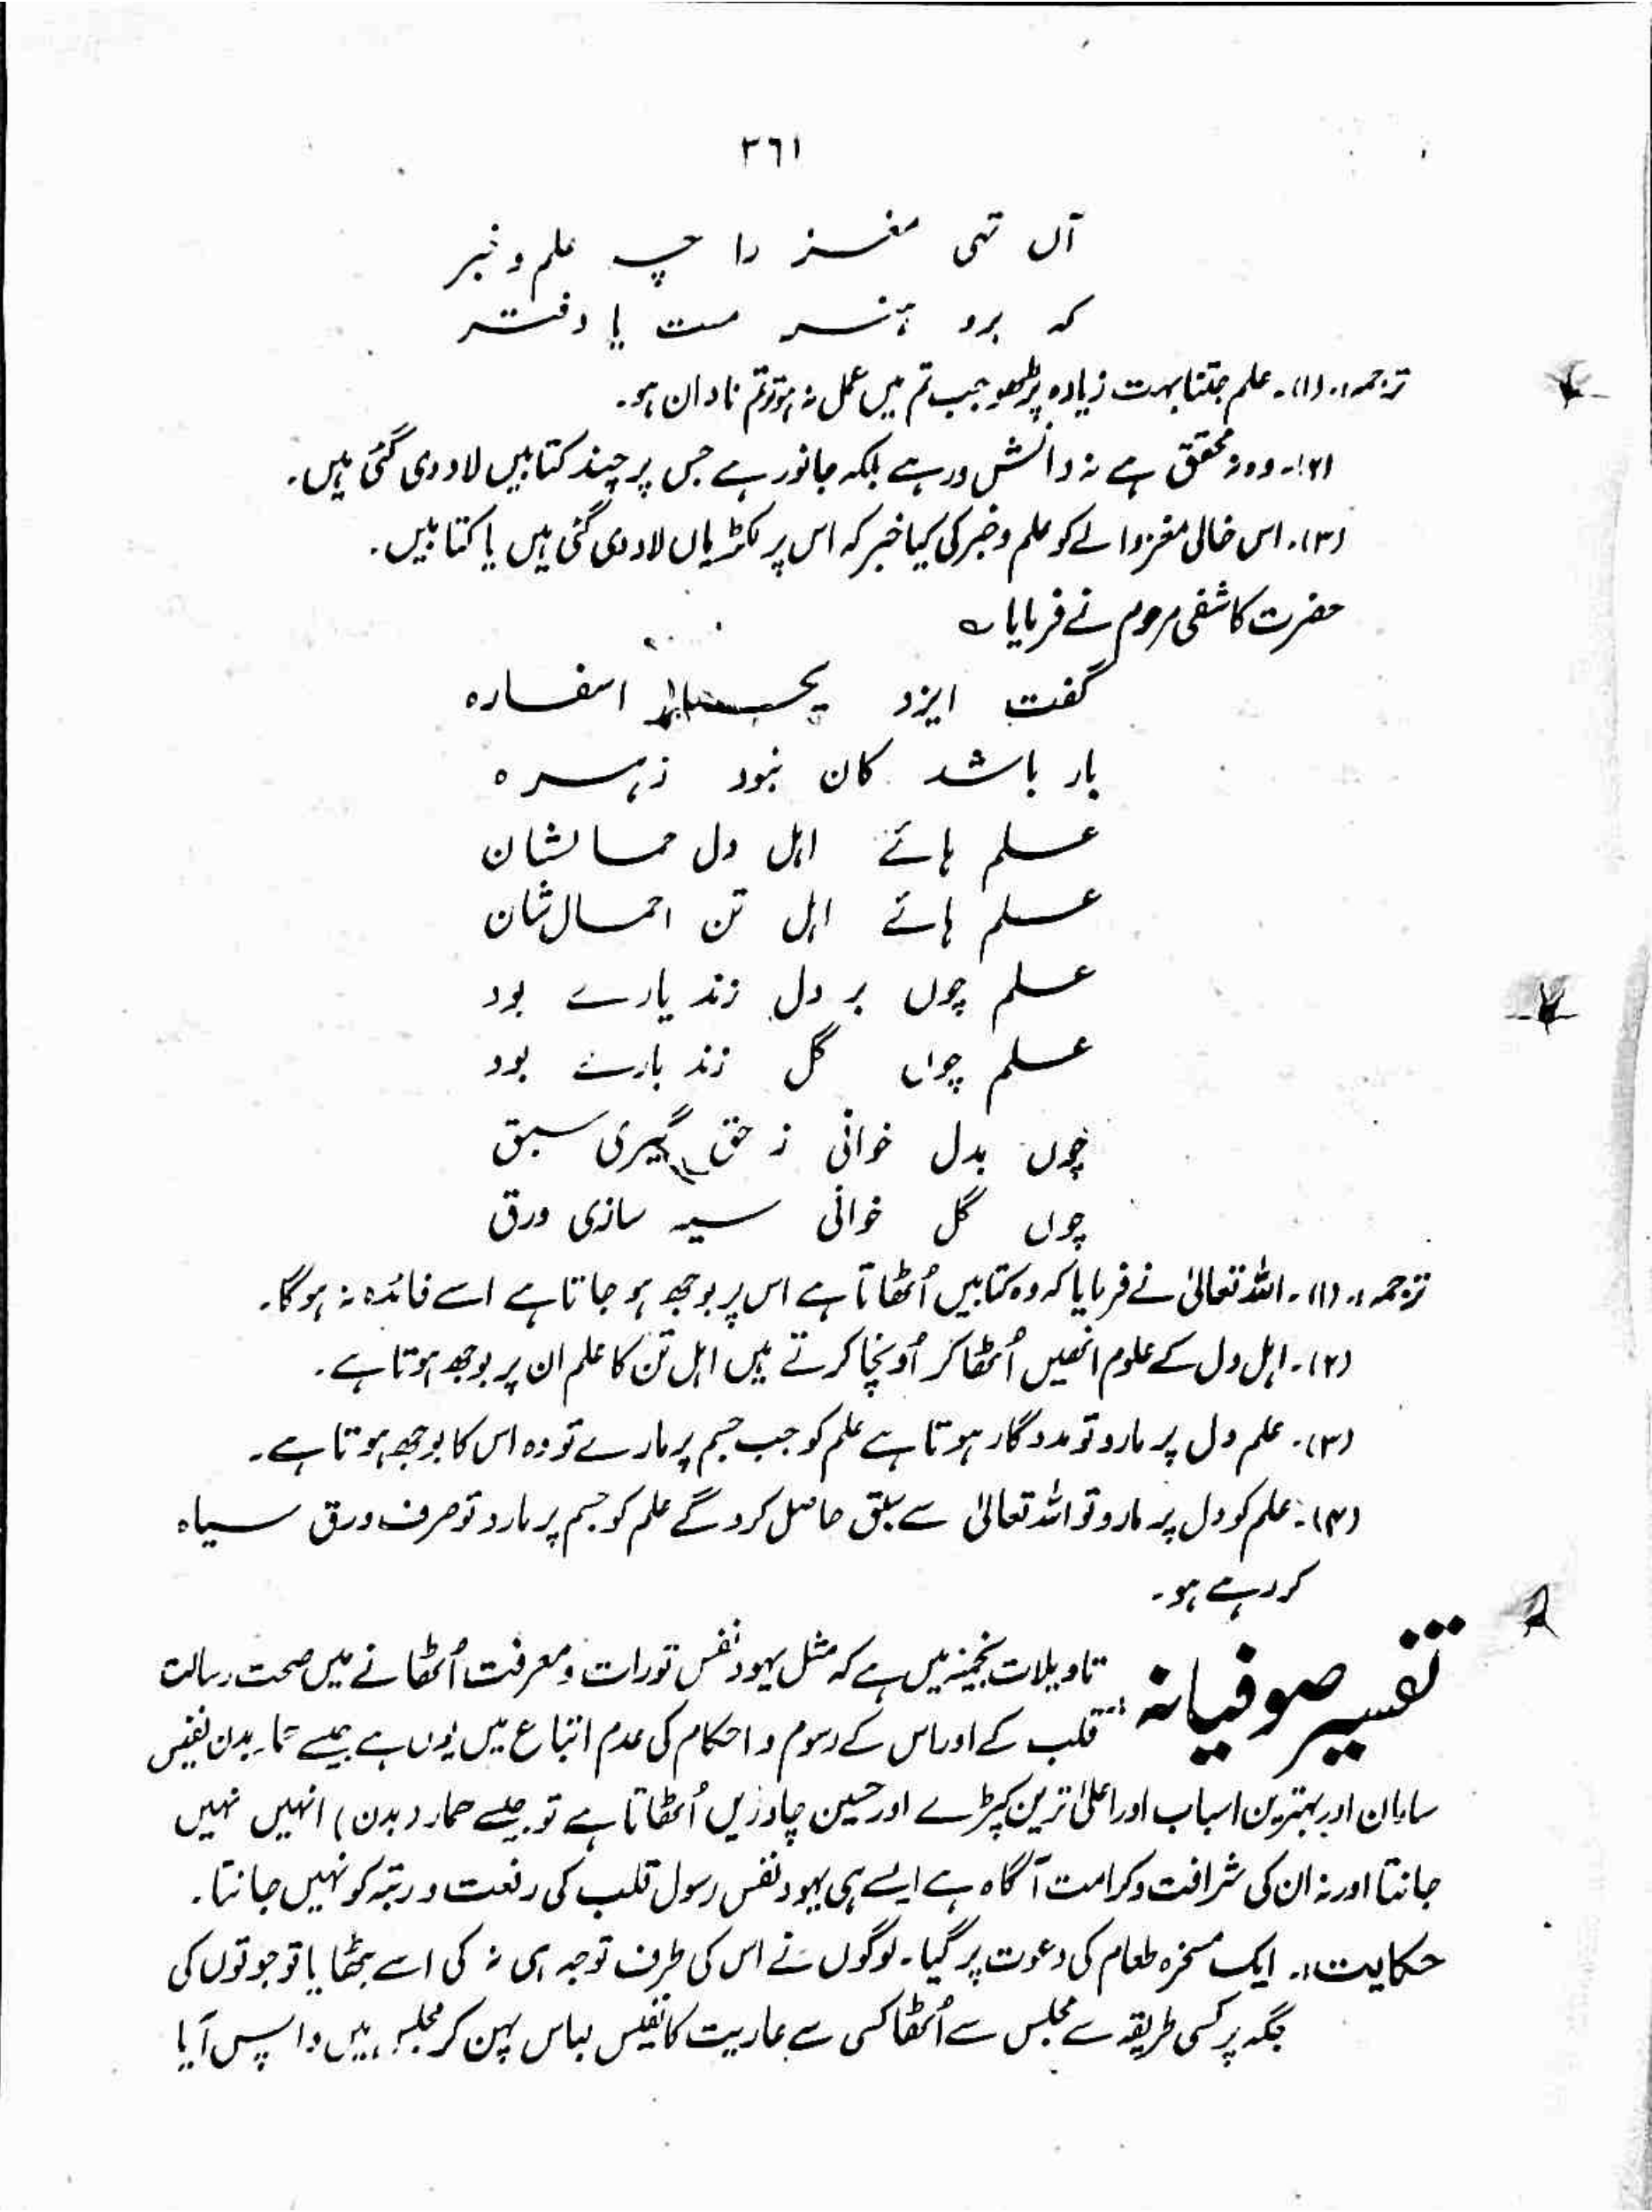 ٣٦١
آں تہی مغز را چہ علم و خبر
کہ برو ہیزم ست یا دفتر
ترجمہ:۔ (۱)۔ علم جتنا بہت زیادہ پڑھو جب تم میں عمل نہ ہو تو تم نادان ہو۔
(۲)۔ وہ نہ محقق ہے نہ دانش ور ہے بلکہ جانور ہے جس پر چند کتابیں لاد دی گئی ہیں۔
(۳)۔ اس خالی مغز والے کو علم و خبر کی کیا خبر کہ اس پر لکڑیاں لاد دی گئی ہیں یا کتابیں۔
حضرت کاشفی مرحوم نے فرمایا ؎
گفت ایزد یحمل اسفارہ
بار باشد کان نبود زہرہ
علم ہائے اہل دل حمالشان
علم ہائے اہل تن احمال شان
علم چوں بر دل زند یارے بود
علم چوں گل زند بارے بود
چوں بدل خوانی ز حق گیری سبق
چوں گل خوانی سیہ سازی ورق
ترجمہ:۔ (۱)۔ اللہ تعالیٰ نے فرمایا کہ وہ کتابیں اُٹھاتا ہے اس پر بوجھ ہو جاتا ہے اسے فائدہ نہ ہوگا۔
(۲)۔ اہل دل کے علوم انھیں اُٹھا کر اُونچا کرتے ہیں اہل تن کا علم ان پر بوجھ ہوتا ہے۔
(۳)۔ علم دل پر مارو تو مددگار ہوتا ہے علم کو جب جسم پر مارے تو وہ اس کا بوجھ ہوتا ہے۔
(۴)۔ علم کو دل پر مارو تو اللہ تعالیٰ سے سبق حاصل کرو گے علم کو جسم پر مارو تو صرف ورق سیاہ
کر رہے ہو۔
تفسیر صوفیانہ
تاویلات نجمیہ میں ہے کہ مثل یہود نفس تورات و معرفت اُٹھانے میں صحت رسالت
قلب کے اور اس کے رسوم و احکام کی عدم اتباع میں یوں ہے جیسے حمار بدن نفیس
سامان اور بہترین اسباب اور اعلیٰ ترین کپڑے اور حسین چادریں اُٹھاتا ہے تو جیسے حمار (بدن) انہیں نہیں
جانتا اور نہ ان کی شرافت و کرامت آگاہ ہے ایسے ہی یہود نفس رسول قلب کی رفعت و رتبہ کو نہیں جانتا۔
حکایت:۔ ایک مسخرہ طعام کی دعوت پر گیا۔ لوگوں نے اس کی طرف توجہ ہی نہ کی اسے بٹھایا تو جوتوں کی
جگہ پر کسی طریقہ سے مجلس سے اُٹھا کسی سے عاریت کا نفیس لباس پہن کر مجلس میں واپس آیا